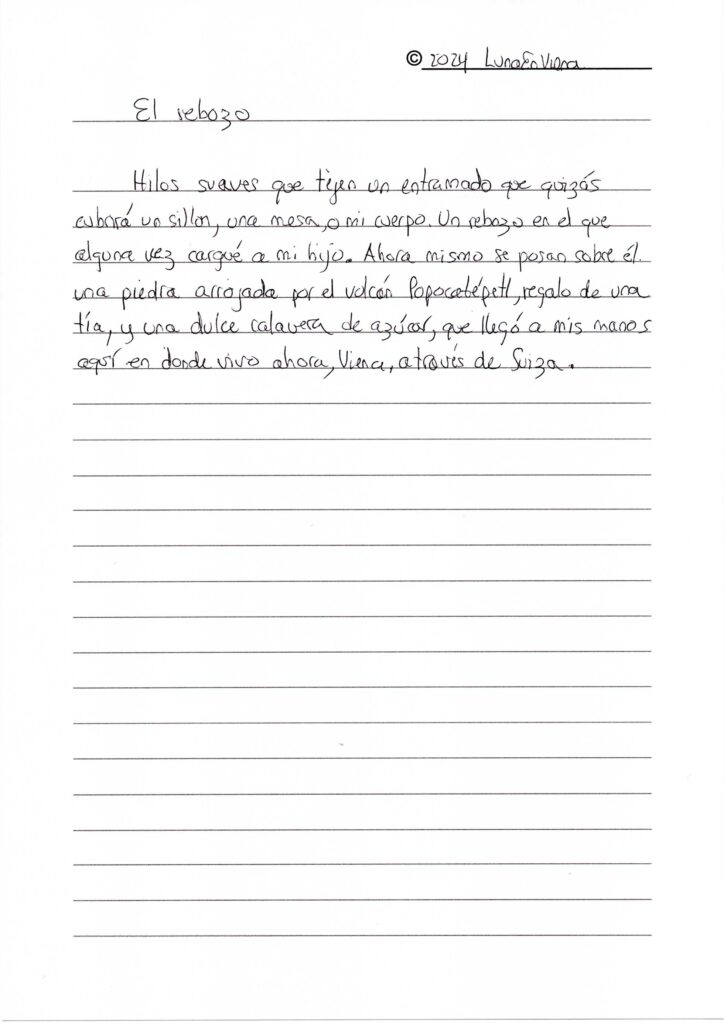 © 2024 LunaEnViena
El rebozo
Hilos suaves que tejen un entramado que quizás
cubrirá un sillón, una mesa, o mi cuerpo. Un rebozo en el que
alguna vez cargué a mi hijo. Ahora mismo se posan sobre él
una piedra arrojada por el volcán Popocatépetl, regalo de una
tía, y una dulce calavera de azúcar, que llegó a mis manos
aquí en donde vivo ahora, Viena, através de Suiza.